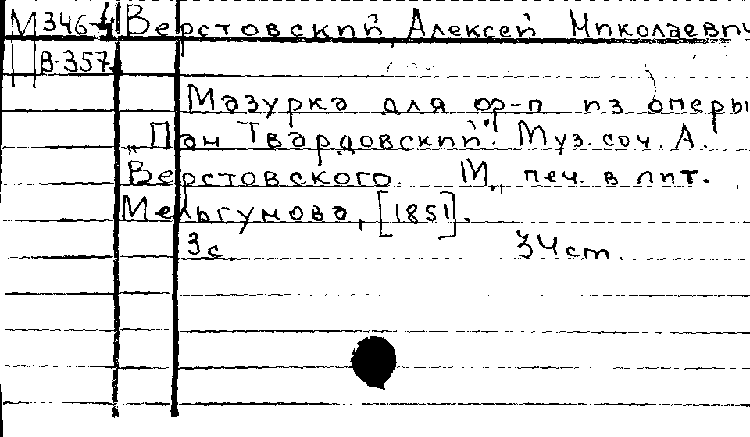 М 346-4 Верстовский, Алексей Николаевич
В-357
Мазурка для ф-п из оперы
„Пан Твардовский". Муз. соч. А.
Верстовского. М., печ. в лит.
Мельгумова, [1851].
3 с. 34 cm.